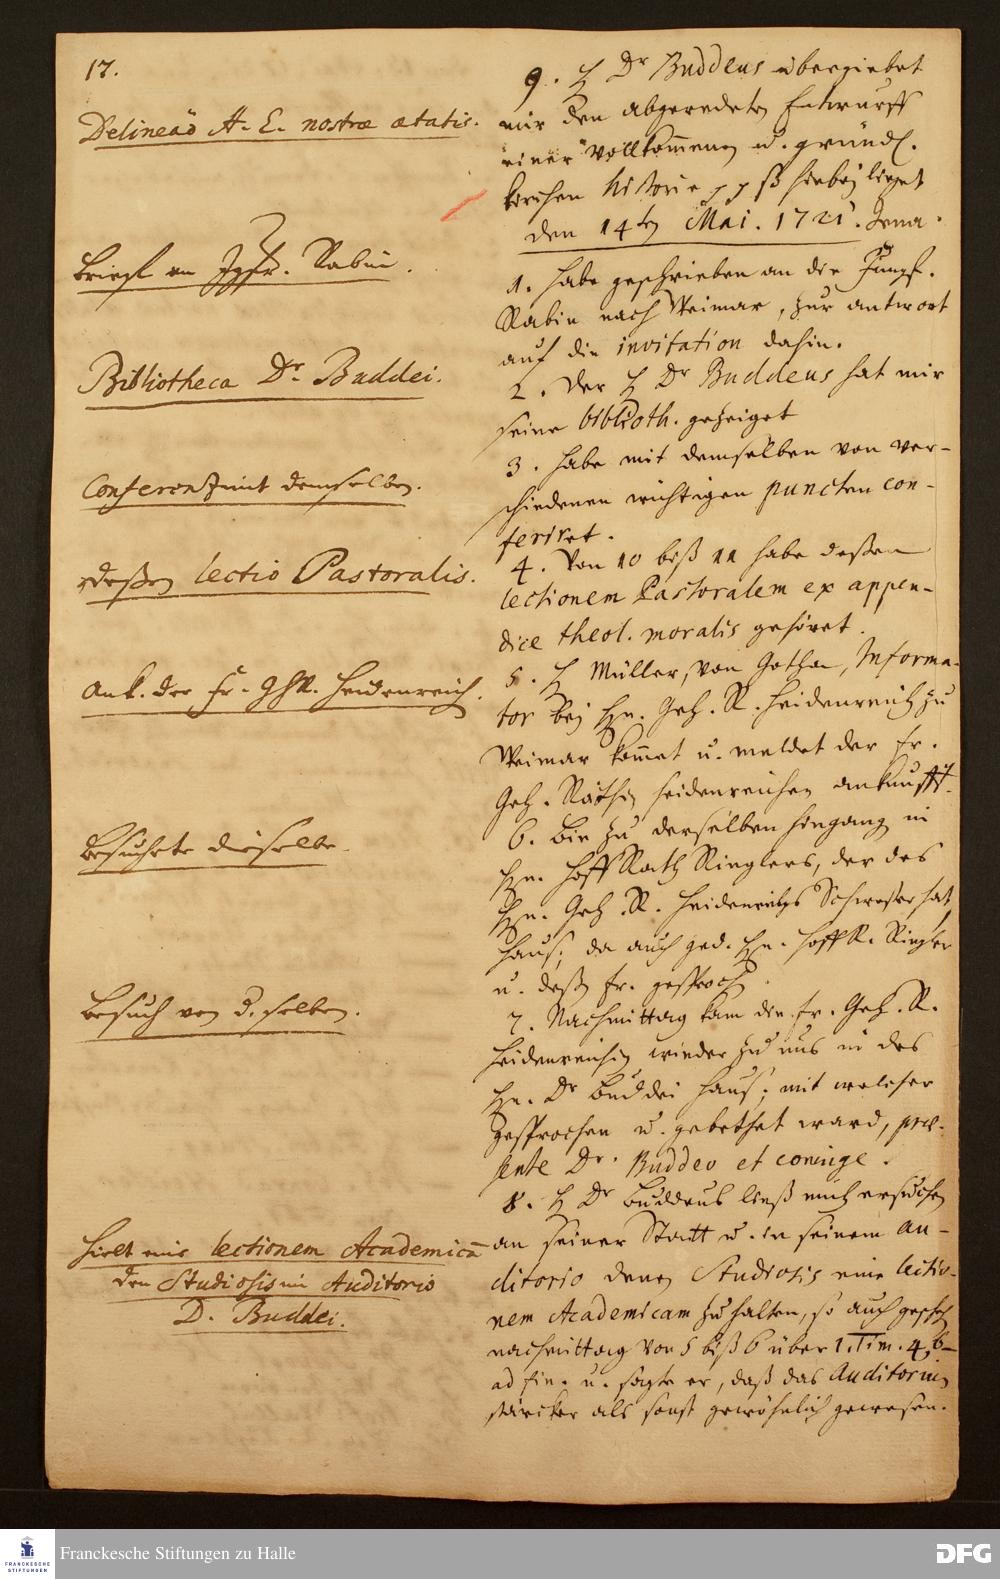 17.
Delineaõ H. E. nostræ ætatis.
Briefl. an Jgfr. Rabin.
Bibliotheca Dr. Buddei.
Conferenz mit demselben.
deßen lectio Pastoralis.
Ank. der Fr. GhR. Heidenreich.
Besuchte dieselbe.
Besuch von d. selben.
Hielt eine lectionem Academicã
den Studiosis im Auditorio
D. Buddei.
9. H Dr Buddeus übergiebet
mir den abgeredeten Entwurff
einer Vollkom̃enen u. gründl.
Kirchen historie pp so hierbey lieget
den 14ten Mai. 1721. Jena.
1. Habe geschrieben an die Jungf.
Rabin nach Weimar, zur antwort
auf die invitation dahin.
2. Der H Dr Buddeus hat mir
seine biblioth. gezeiget
3. Habe mit demselben von ver-
schiedenen wichtigen puncten con-
feriret.
4. Von 10 biß 11 habe deßen
lectionem Pastoralem ex appen-
dice theol. moralis gehöret.
5. H Müller, von Gotha, Informa-
tor bey Hn. Geh. R. Heidenreich zu
Weimar kom̃et u. meldet der Fr.
Geh. Räthin Heidenreichen ankunfft.
6. Bin zu derselben hingang. in
Hn. Hoff Rath Ringlers, der des
Hn. Geh. R. Heidenreichs Schwester hat
Hauß; da auch ged. Hn. Hoff R. Ringler
u. deßen Fr. gesproch.
7. Nachmittag kam die Fr. Geh. R.
Heidenreichin wieder zu uns in des
Hn. Dr Buddei Hauß; mit welcher
gesprochen u. gebethet ward, præ-
sente Dr. Buddeo et coniuge.
8. H Dr Buddeus ließ mich ersuchen
an seiner Statt u. in seinem Au-
ditorio denen Studiosis eine lectio-
nem Academicam zu halten, so auch gesch.
nachmittag von 5 biß 6 über 1. Tim. 4, 6-
ad fin. u. sagte er, daß das Auditorium
stärcker als sonst gewöhnlich gewesen.
Franckesche Stiftungen zu Halle
FRANCKESCHE
STIFTUNGEN
DFG